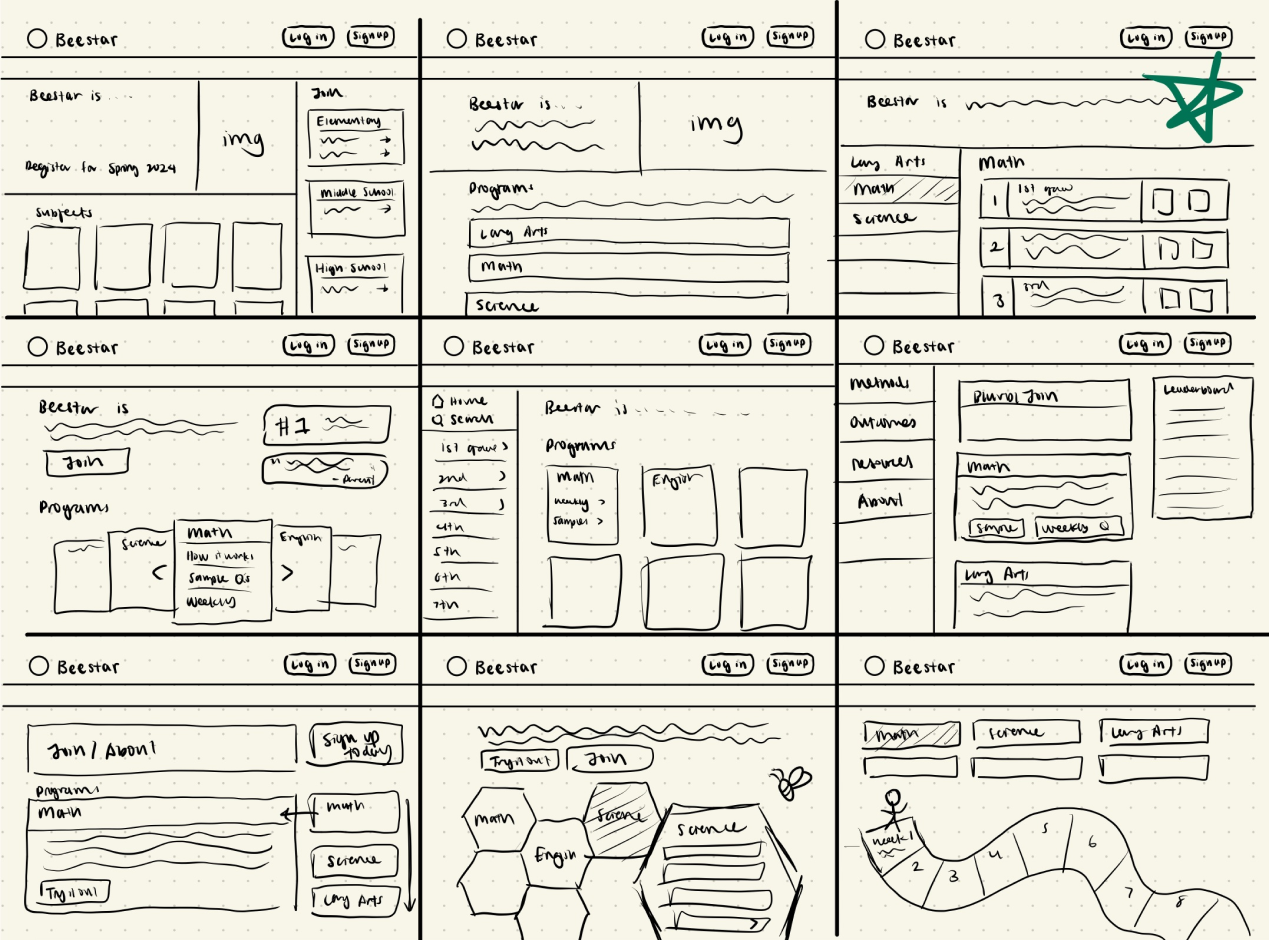 Beestar
Log in
Sign up
Beestar is ....
Register for Spring 2024
img
Join
Elementary
Middle School
High School
Subjects
Beestar
Log in
Sign up
Beestar is ...
img
Programs
Lang Arts
Math
Science
Beestar
Log in
Sign up
Beestar is
Lang Arts
Math
Science
Math
1
1st grade
2
3
3rd
Beestar
Log in
Sign up
Beestar is
Join
#1
"
- Parent
Programs
Science
<
Math
How it works
Sample Qs
Weekly
>
English
Beestar
Log in
Sign up
Home
Search
1st grade >
2nd >
3rd >
4th
5th
6th
7th
Beestar is
Programs
Math
weekly >
samples >
English
Beestar
Log in
Sign up
Methods
Outcomes
Resources
About
Blurb/Join
Math
Sample
Weekly Q
Lang Arts
Leaderboard
Beestar
Log in
Sign up
Join / About
Sign up
today
Programs
Math
Try it out
Math
Science
Lang Arts
Beestar
Log in
Sign up
Try it out
Join
Math
English
Science
Science
>
Beestar
Log in
Sign up
Math
Science
Lang Arts
week 1
2
3
4
5
6
7
8